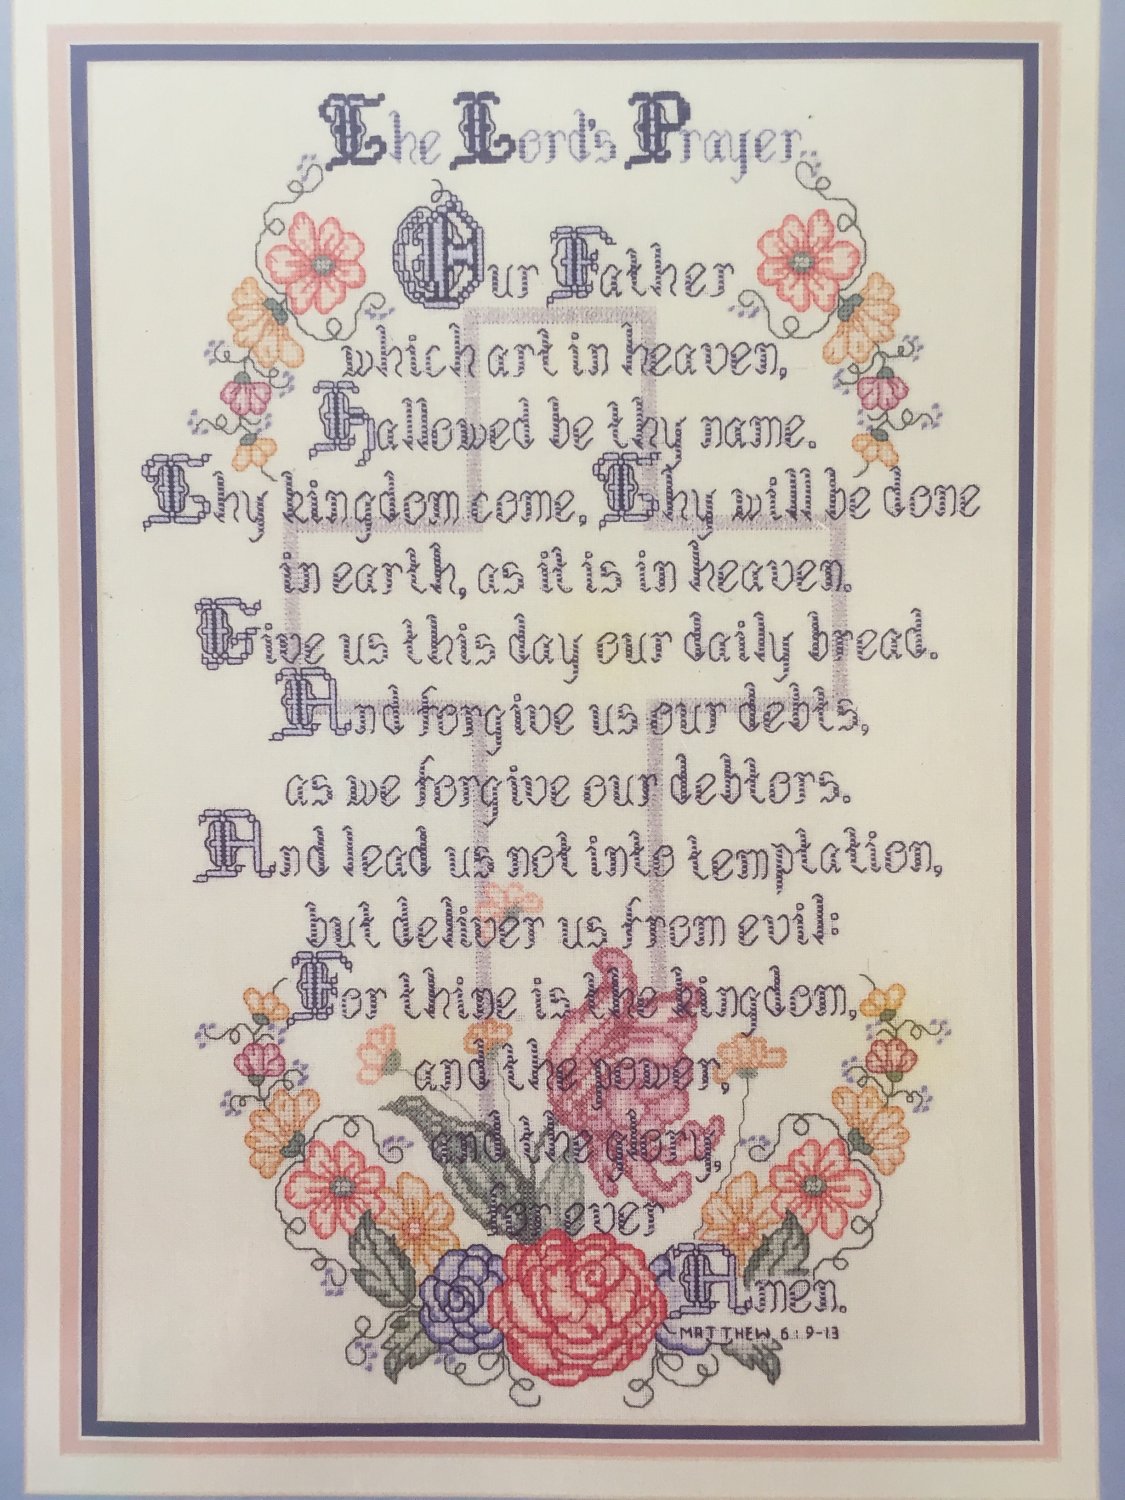 The Lord's Prayer
Our Father
which art in heaven,
Hallowed be thy name.
Thy kingdom come, Thy will be done
in earth, as it is in heaven.
Give us this day our daily bread.
And forgive us our debts,
as we forgive our debtors.
And lead us not into temptation,
but deliver us from evil:
For thine is the kingdom,
and the power,
and the glory,
for ever
Amen.
MATTHEW 6:9-13